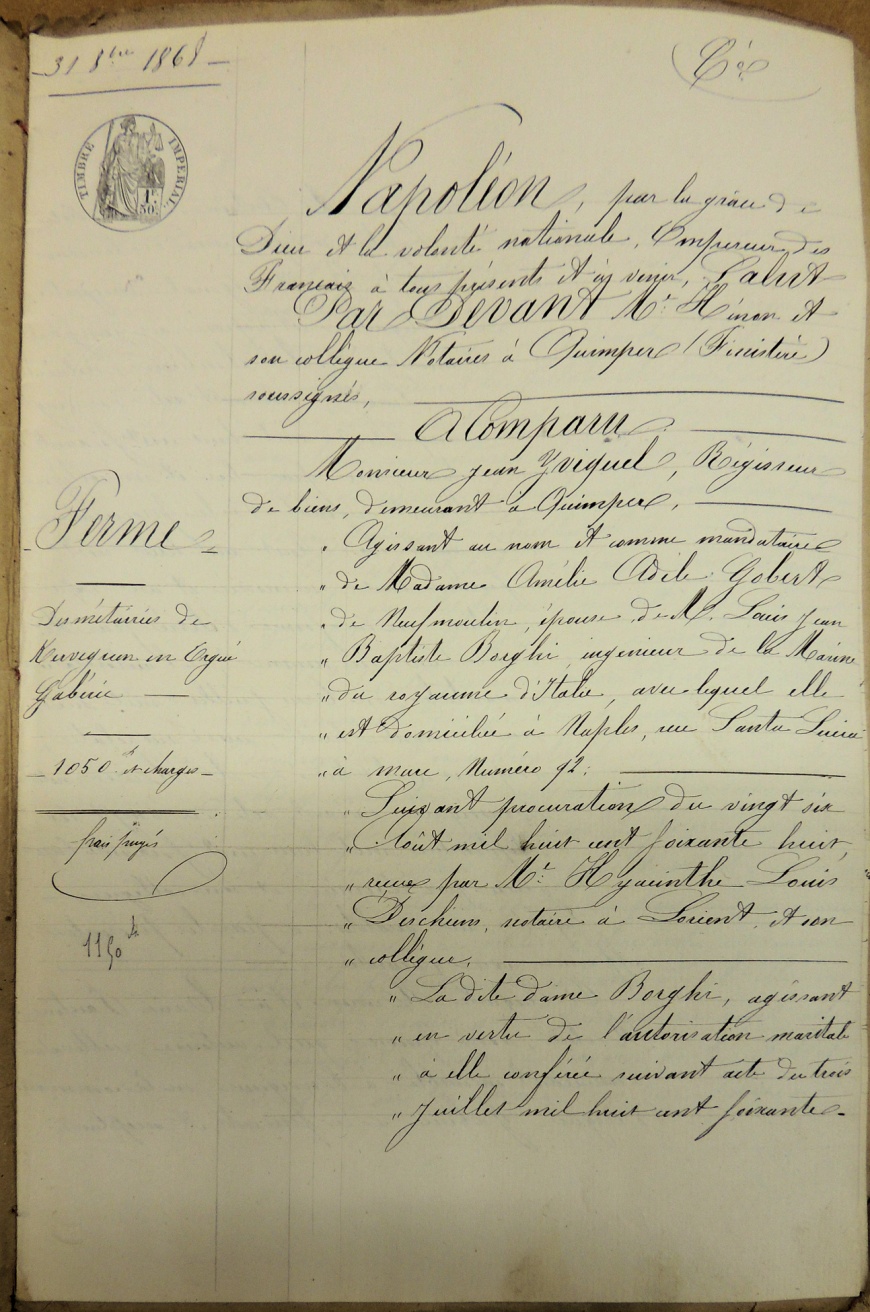 31 8bre 1868
TIMBRE IMPERIAL
1F
50C
Napoléon, par la grâce de
Dieu et la volonté nationale, Empereur des
Français à tous présents et à venir, Salut
Par Devant Me Hénon et
son collègue Notaires à Quimper (Finistère)
soussignés,
A Comparu
Monsieur Jean Yviquel, Régisseur
de biens, demeurant à Quimper,
Ferme
Des métairies de
en Ergué
Gabéric
1050 f et charges
frais payés
1150 f
" Agissant au nom et comme mandataire
" de Madame Amélie Adèle Gobert
" de Neufmoulin, épouse de M. Louis Jean
" Baptiste Borghi, ingénieur de la Marine
" du royaume d'Italie, avec lequel elle
" est domiciliée à Naples, rue Santa Lucia
" à mare, Numéro 92:
" Suivant procuration du vingt six
" Août mil huit cent soixante huit,
" reçue par Me Hyacinthe Louis
" notaire à Lorient, et son
" collègue,
" La dite dame Borghi, agissant
" en vertu de l'autorisation maritale
" à elle conférée suivant acte du trois
" Juillet mil huit cent soixante-